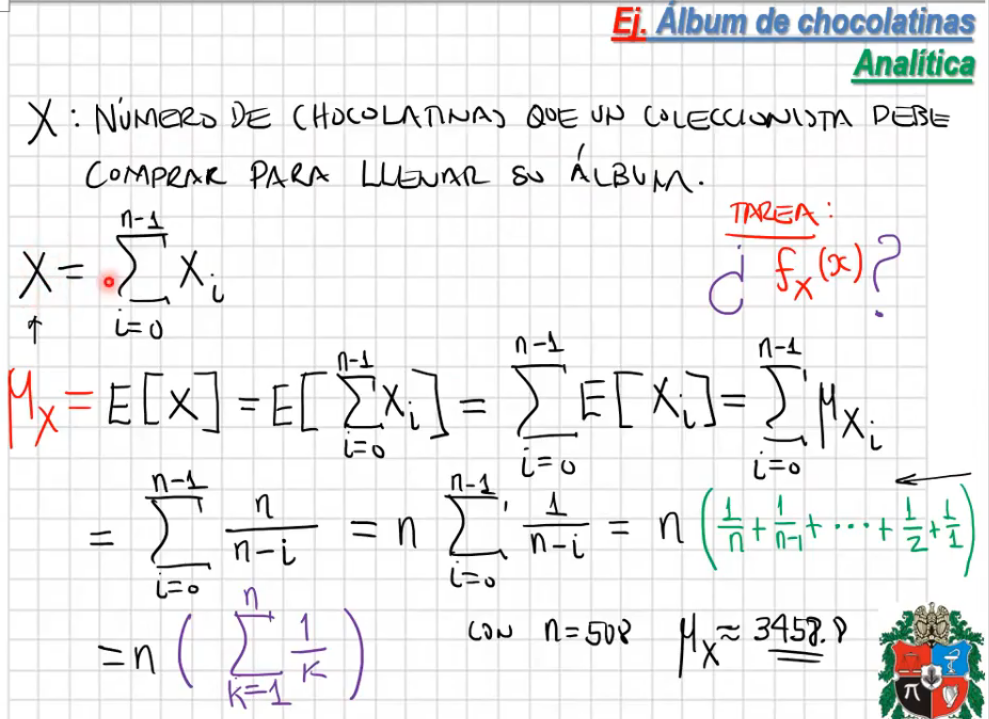 Ej. Álbum de chocolatinas
Analítica
X : NÚMERO DE CHOCOLATINAS QUE UN COLECCIONISTA DEBE
COMPRAR PARA LLENAR SU ÁLBUM.
TAREA:
¿ f_X(x) ?
X = ∑_{i=0}^{n-1} X_i
μ_X = E[X] = E[∑_{i=0}^{n-1} X_i] = ∑_{i=0}^{n-1} E[X_i] = ∑_{i=0}^{n-1} μ_{X_i}
= ∑_{i=0}^{n-1} n/(n-i) = n ∑_{i=0}^{n-1} 1/(n-i) = n (1/n + 1/(n-1) + ... + 1/2 + 1/1)
= n (∑_{k=1}^{n} 1/k) CON n=508 μ_X ≈ 3458.8
π